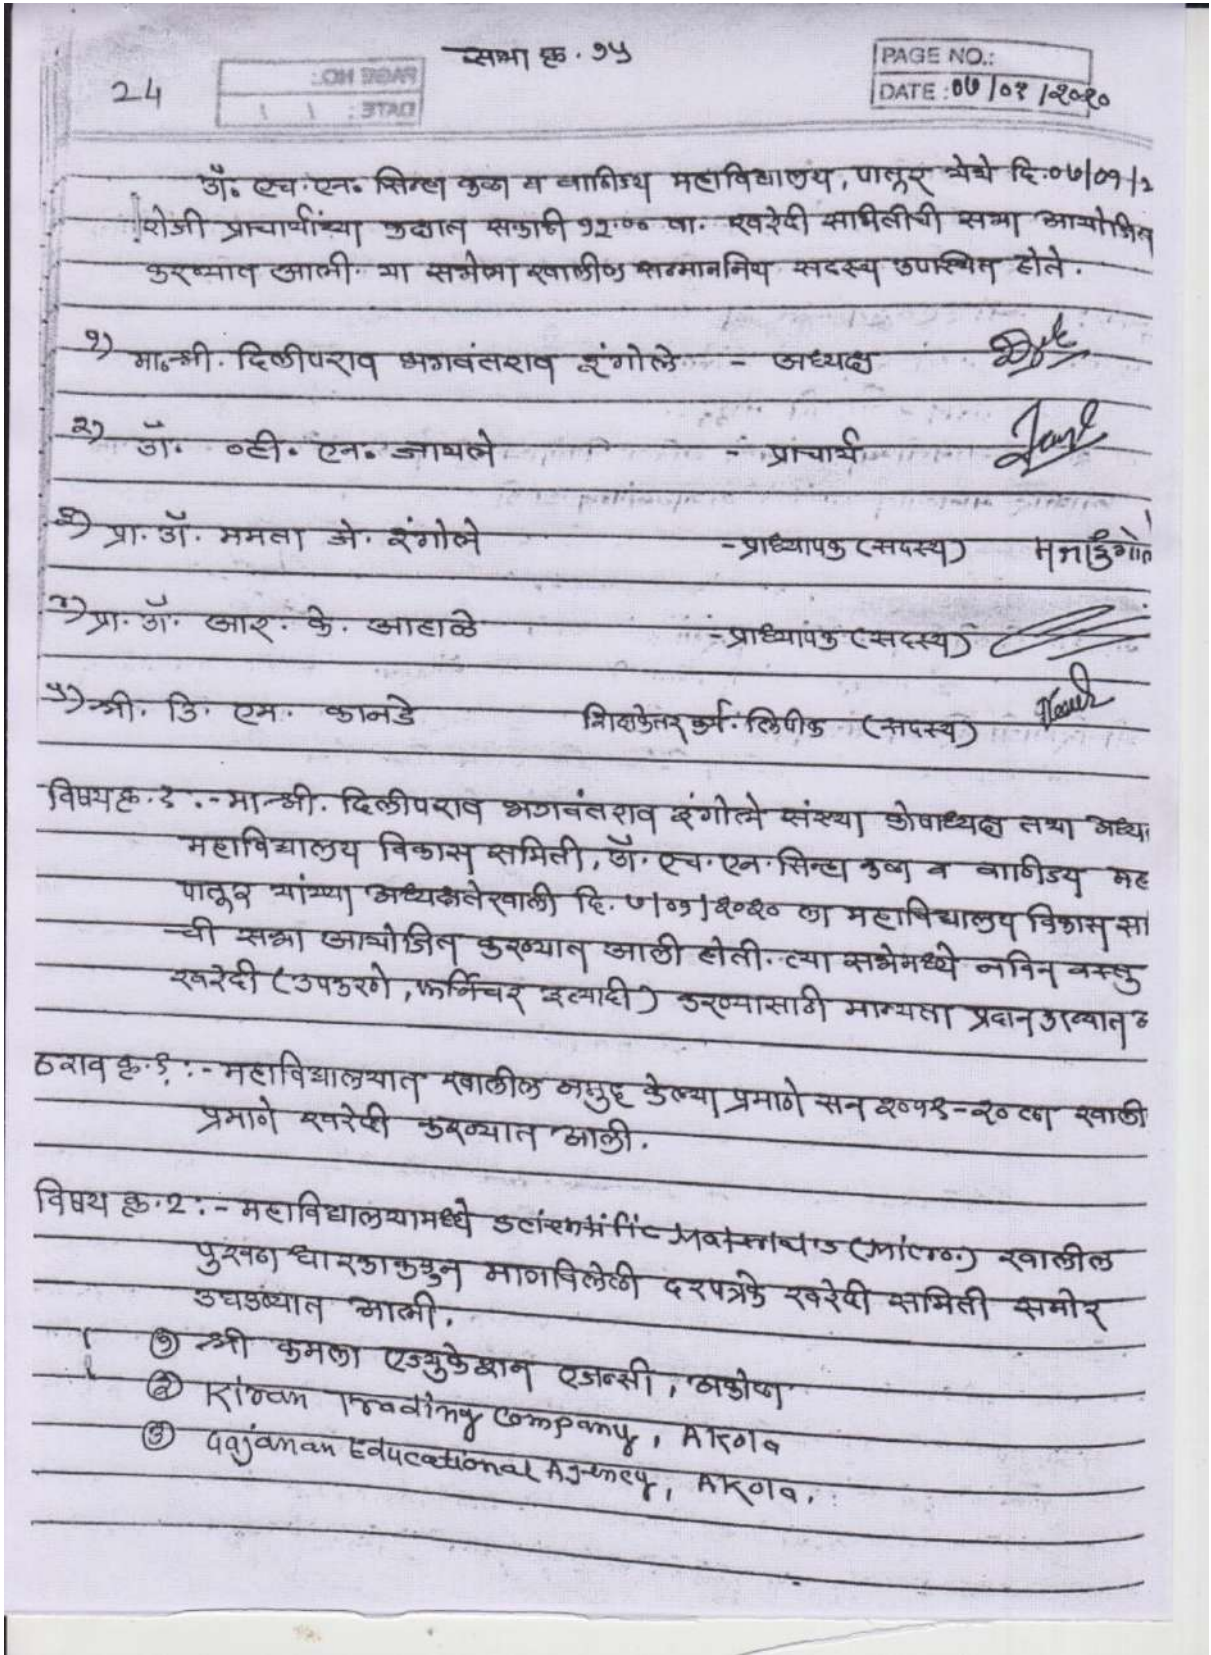 सभा क्र. १५
24
PAGE NO.:
DATE: ०७/०१/२०२०
PAGE NO.:
DATE: / /
डॉ. एच. एन. सिन्हा कला व वाणिज्य महाविद्यालय, पातूर येथे दि. ०७/०१/२
रोजी प्राचार्यांच्या कक्षात सकाळी १२.०० वा. खरेदी समितीची सभा आयोजित
करण्यात आली. या सभेला खालील सन्माननिय सदस्य उपस्थित होते.
१) मा. श्री. दिलीपराव भगवंतराव इंगोले - अध्यक्ष
२) डॉ. व्ही. एन. जायले - प्राचार्य
३) प्रा. डॉ. ममता जे. इंगोले - प्राध्यापक (सदस्य)
४) प्रा. डॉ. आर. के. आहाळे - प्राध्यापक (सदस्य)
५) श्री. डि. एम. कानडे शिक्षकेतर कर्म. लिपीक (सदस्य)
विषय क्र. १ :- मा. श्री. दिलीपराव भगवंतराव इंगोले संस्था कोषाध्यक्ष तथा अध्य
महाविद्यालय विकास समिती, डॉ. एच. एन. सिन्हा कला व वाणिज्य मह
पातूर यांच्या अध्यक्षतेखाली दि. ७/०१/२०२० ला महाविद्यालय विकास स
ची सभा आयोजित करण्यात आली होती. त्या सभेमध्ये नविन वस्तु
खरेदी (उपकरणे, फर्निचर इत्यादी) करण्यासाठी मान्यता प्रदान करण्यात
ठराव क्र. १ :- महाविद्यालयात खालील नमुद केल्या प्रमाणे सन खाली
प्रमाणे खरेदी करण्यात आली.
विषय क्र. 2 :- महाविद्यालयामध्ये (Micro.) खालील
पुरवठा धारकाकडुन मागविलेली दरपत्रके खरेदी समिती समोर
उघडण्यात आली.
१) श्री कमला एज्युकेशन एजन्सी, अकोला
२) Kiran Trading Company, Akola
३) Gajanan Educational Agency, Akola.